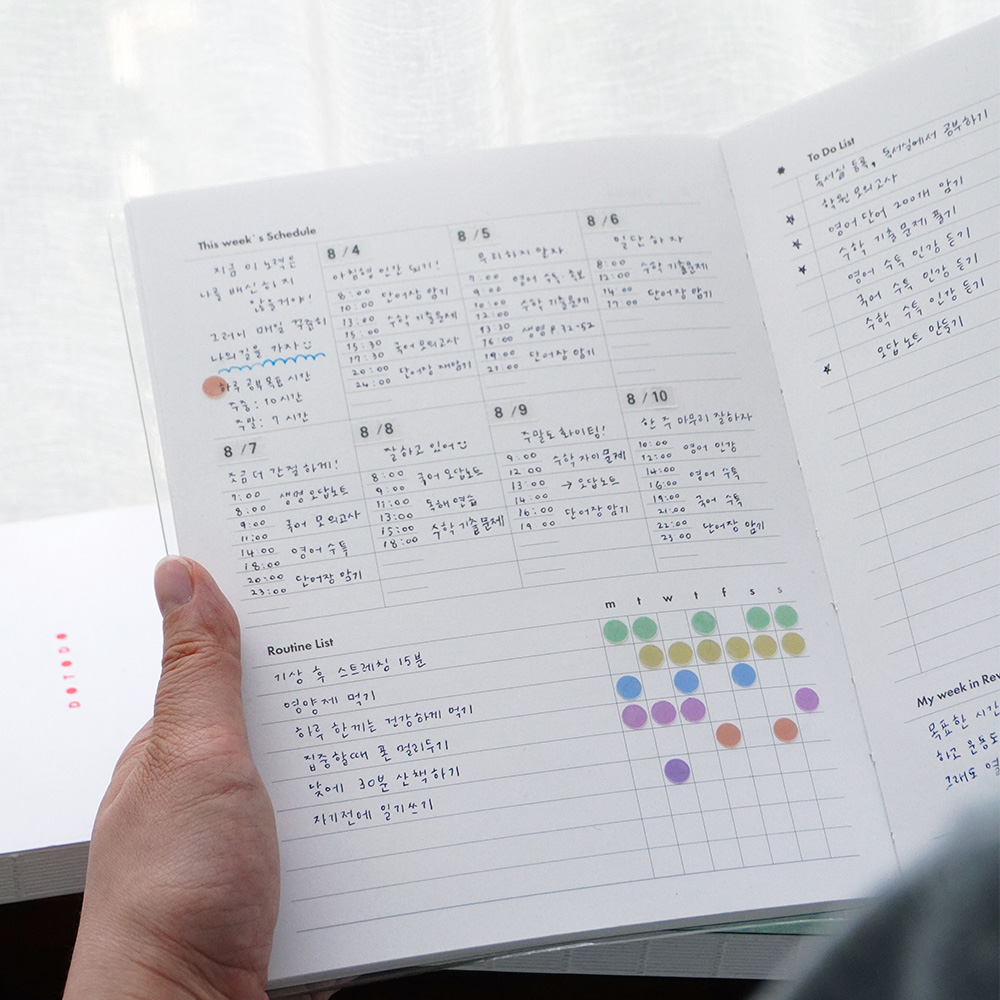 This week's Schedule
지금 이 노력은
나를 배신하지
않을거야!
그러니 매일 꾸준히
나의 길을 가자
하루 공부목표 시간
주중: 10시간
주말: 7시간
8/4
아침형 인간 되기!
8:00
10:00 단어장 암기
13:00 수학 기출문제
15:00
15:30 국어 모의고사
17:30
20:00 단어장 재암기
24:00
8/5
무리하지 말자
7:00 영어 수특
9:00
10:00 수학 기출문제
12:00
13:30 생명 P 32-52
16:00
19:00 단어장 암기
21:00
8/6
일단 하자
8:00 수학 기출문제
12:00
14:00 단어장 암기
17:00
8/7
조금 더 간절하게!
7:00 생명 오답노트
8:00
9:00 국어 모의고사
11:00
14:00 영어 수특
18:00
20:00 단어장 암기
23:00
8/8
잘하고 있어
8:00 국어 오답노트
9:00
11:00 독해연습
13:00
15:00 수학 기출문제
18:00
8/9
주말도 화이팅!
9:00 수학 자이 문제
12:00
13:00 → 오답노트
14:00
16:00 단어장 암기
19:00
8/10
한 주 마무리 잘하자
10:00 영어 인강
12:00
14:00 영어 수특
16:00
19:00 국어 수특
21:00
22:00 단어장 암기
23:00
Routine List
m t w t f s s
기상 후 스트레칭 15분
영양제 먹기
하루 한끼는 건강하게 먹기
집중할때 폰 멀리두기
낮에 30분 산책하기
자기전에 일기쓰기
To Do List
독서실 등록, 독서실에서 공부하기
학원 모의고사
영어 단어 200개 암기
수학 기출 문제 풀기
영어 수특 인강 듣기
국어 수특 인강 듣기
수학 수특 인강 듣기
오답 노트 만들기
My week in Rev
목표한 시간
하고 운동도
그래도
DOTODO